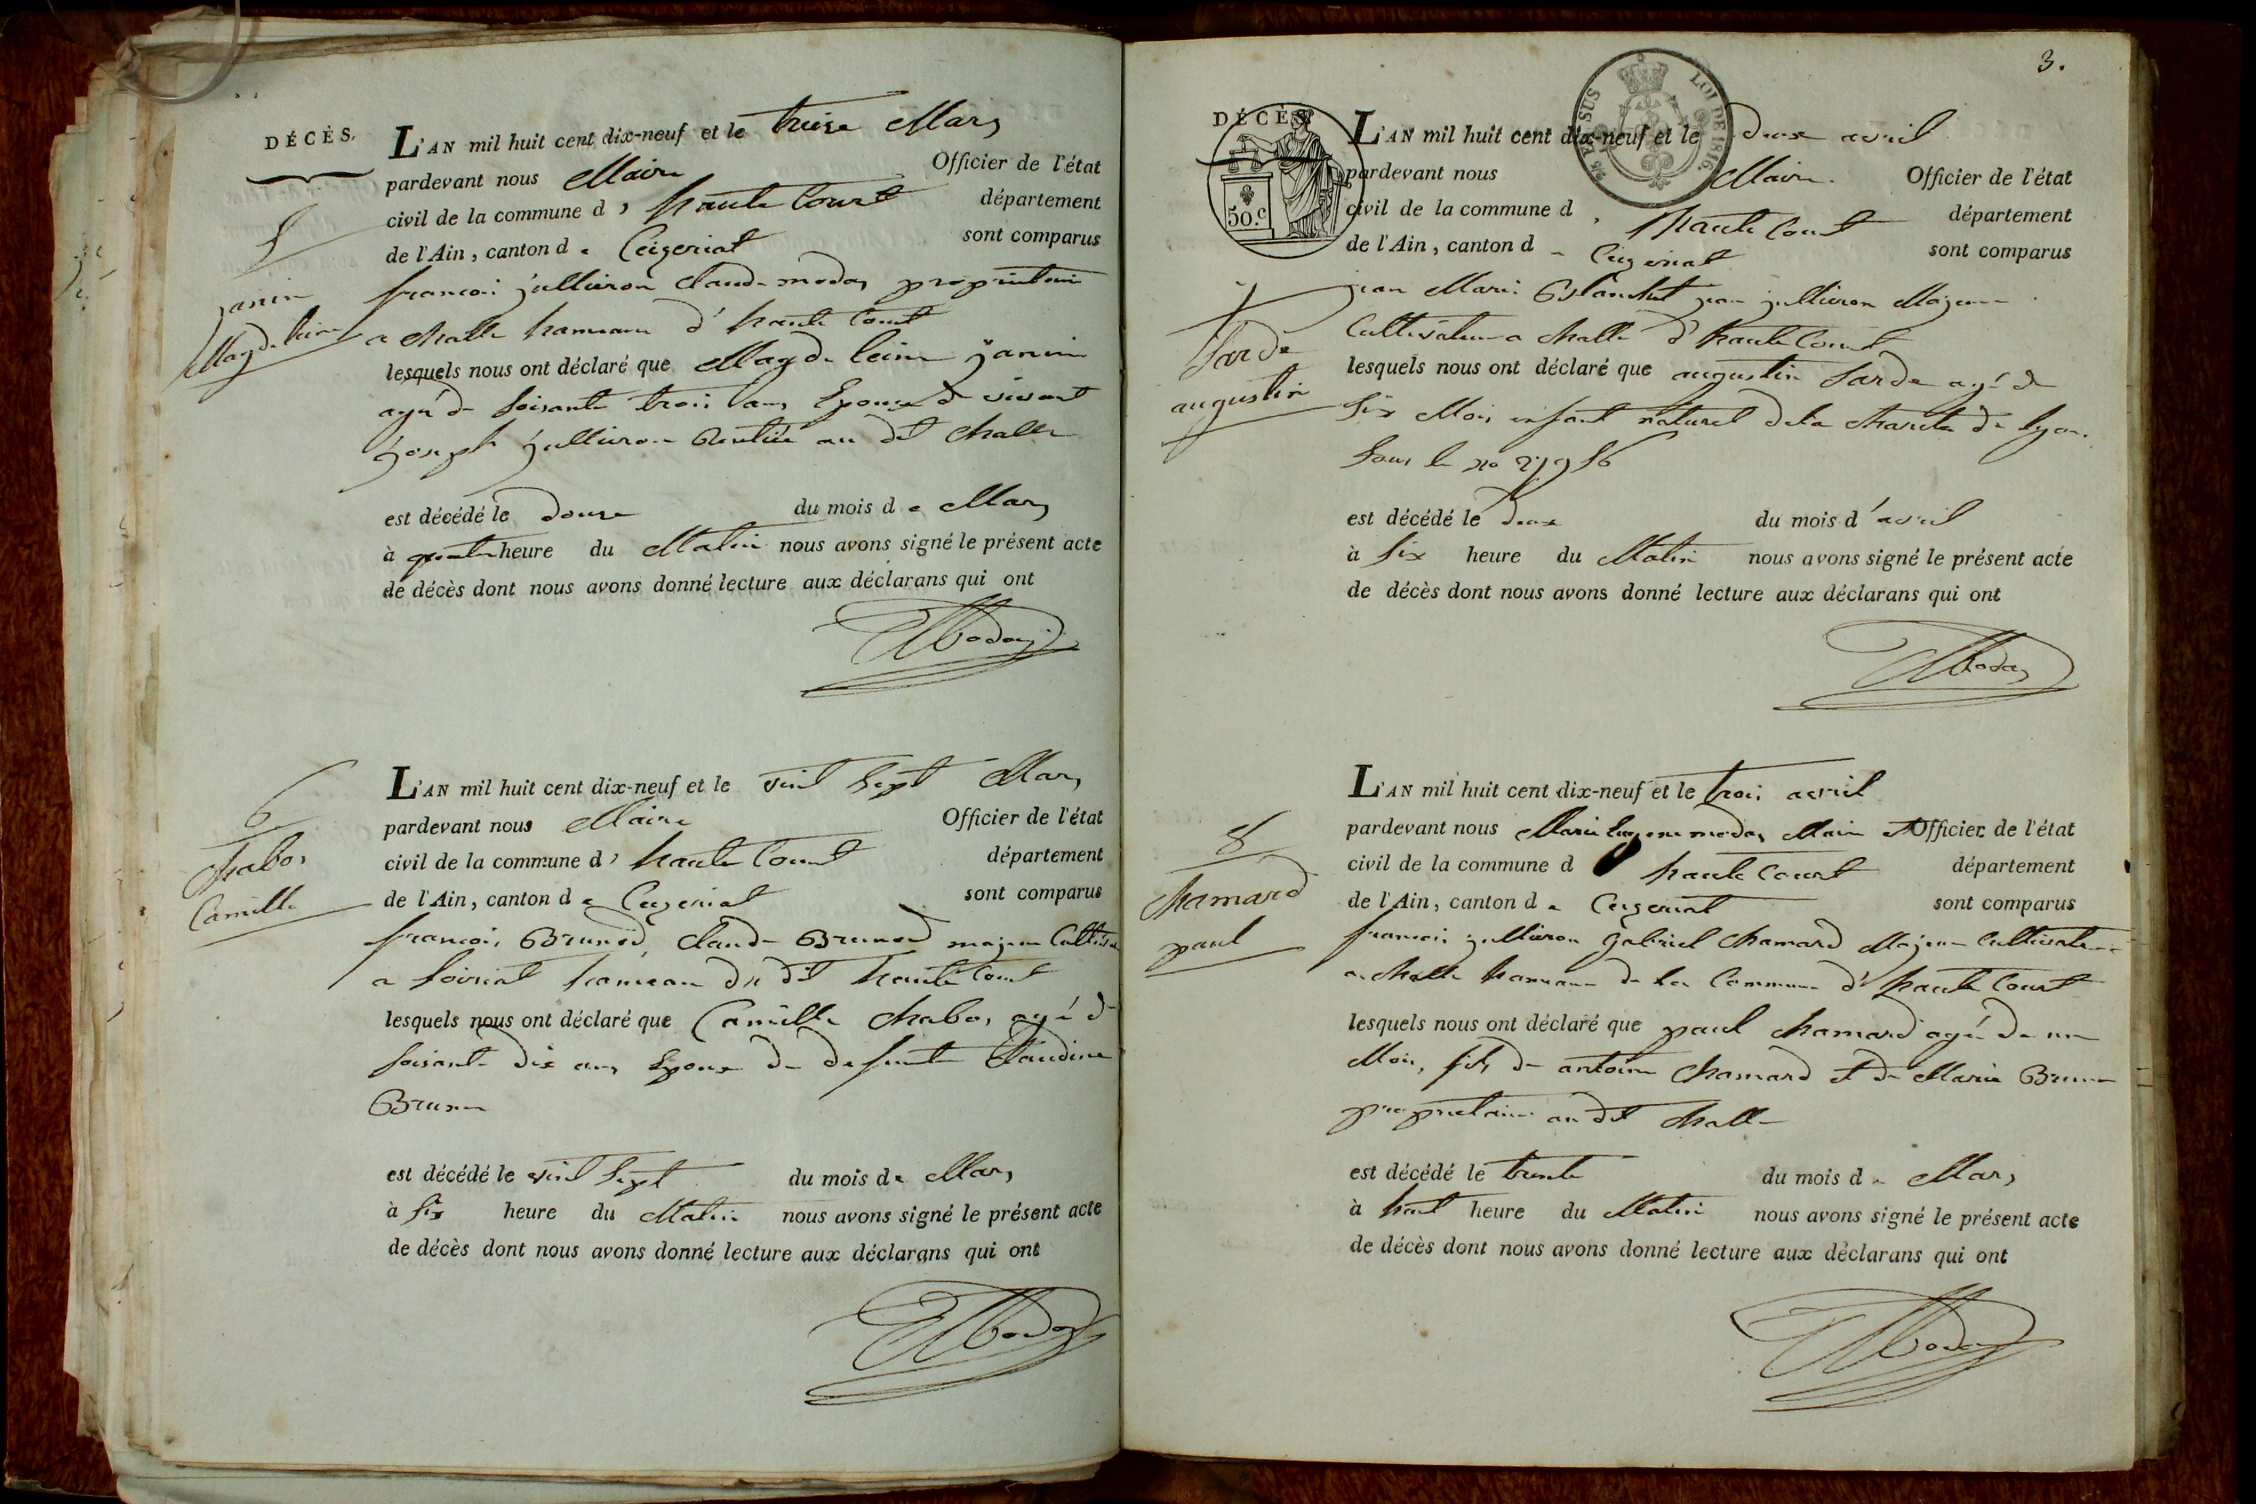 DÉCÈS.
L'AN mil huit cent dix-neuf et le treise Mars
pardevant nous Maire Officier de l'état
civil de la commune d' hautecourt département
de l'Ain, canton de Ceizeriat sont comparus
5
janin
Magdeleine
francois jullieron claude modas propriétaire
a challe hameau d'hautecourt
lesquels nous ont déclaré que Magdeleine janin
agé de soisante trois ans Epouse de vivant
joseph jullieron Rentier au dit challe
est décédé le douse du mois de Mars
à quatre heure du Matin nous avons signé le présent acte
de décès dont nous avons donné lecture aux déclarans qui ont
Modas
L'AN mil huit cent dix-neuf et le vint sept Mars
pardevant nous Maire Officier de l'état
civil de la commune d' hautecourt département
de l'Ain, canton de Ceizeriat sont comparus
6
Chabos
Camille
francois Brunod, claude Brunod majeur
a hameau du dit hautecourt
lesquels nous ont déclaré que Camille chabos agé de
soisante dix ans Epoux de defunte Claudine
est décédé le vint sept du mois de Mars
à six heure du Matin nous avons signé le présent acte
de décès dont nous avons donné lecture aux déclarans qui ont
Modas
3.
DÉCÈS.
50.c
EN SUS LOI DE 1816.
L'AN mil huit cent dix-neuf et le deux avril
pardevant nous Maire Officier de l'état
civil de la commune d' hautecourt département
de l'Ain, canton de Ceizeriat sont comparus
7
Sarde
augustin
jean Marie Blanchet jean jullieron Majeur
Cultivateur a challe d'hautecourt
lesquels nous ont déclaré que augustin Sarde agé de
six Mois enfant naturel de la charité de lyon
sous le no
est décédé le deux du mois d'avril
à six heure du Matin nous avons signé le présent acte
de décès dont nous avons donné lecture aux déclarans qui ont
Modas
L'AN mil huit cent dix-neuf et le trois avril
pardevant nous Marie Eugene modas Maire et Officier de l'état
civil de la commune d hautecourt département
de l'Ain, canton de Ceizeriat sont comparus
8
Chamard
paul
francois jullieron gabriel chamard Majeur Cultivateur
a challe hameau de la Commune d'hautecourt
lesquels nous ont déclaré que paul chamard agé de un
Mois, fils de antoine chamard et de Marie
propriétaire au dit challe
est décédé le trente du mois de Mars
à huit heure du Matin nous avons signé le présent acte
de décès dont nous avons donné lecture aux déclarans qui ont
Modas